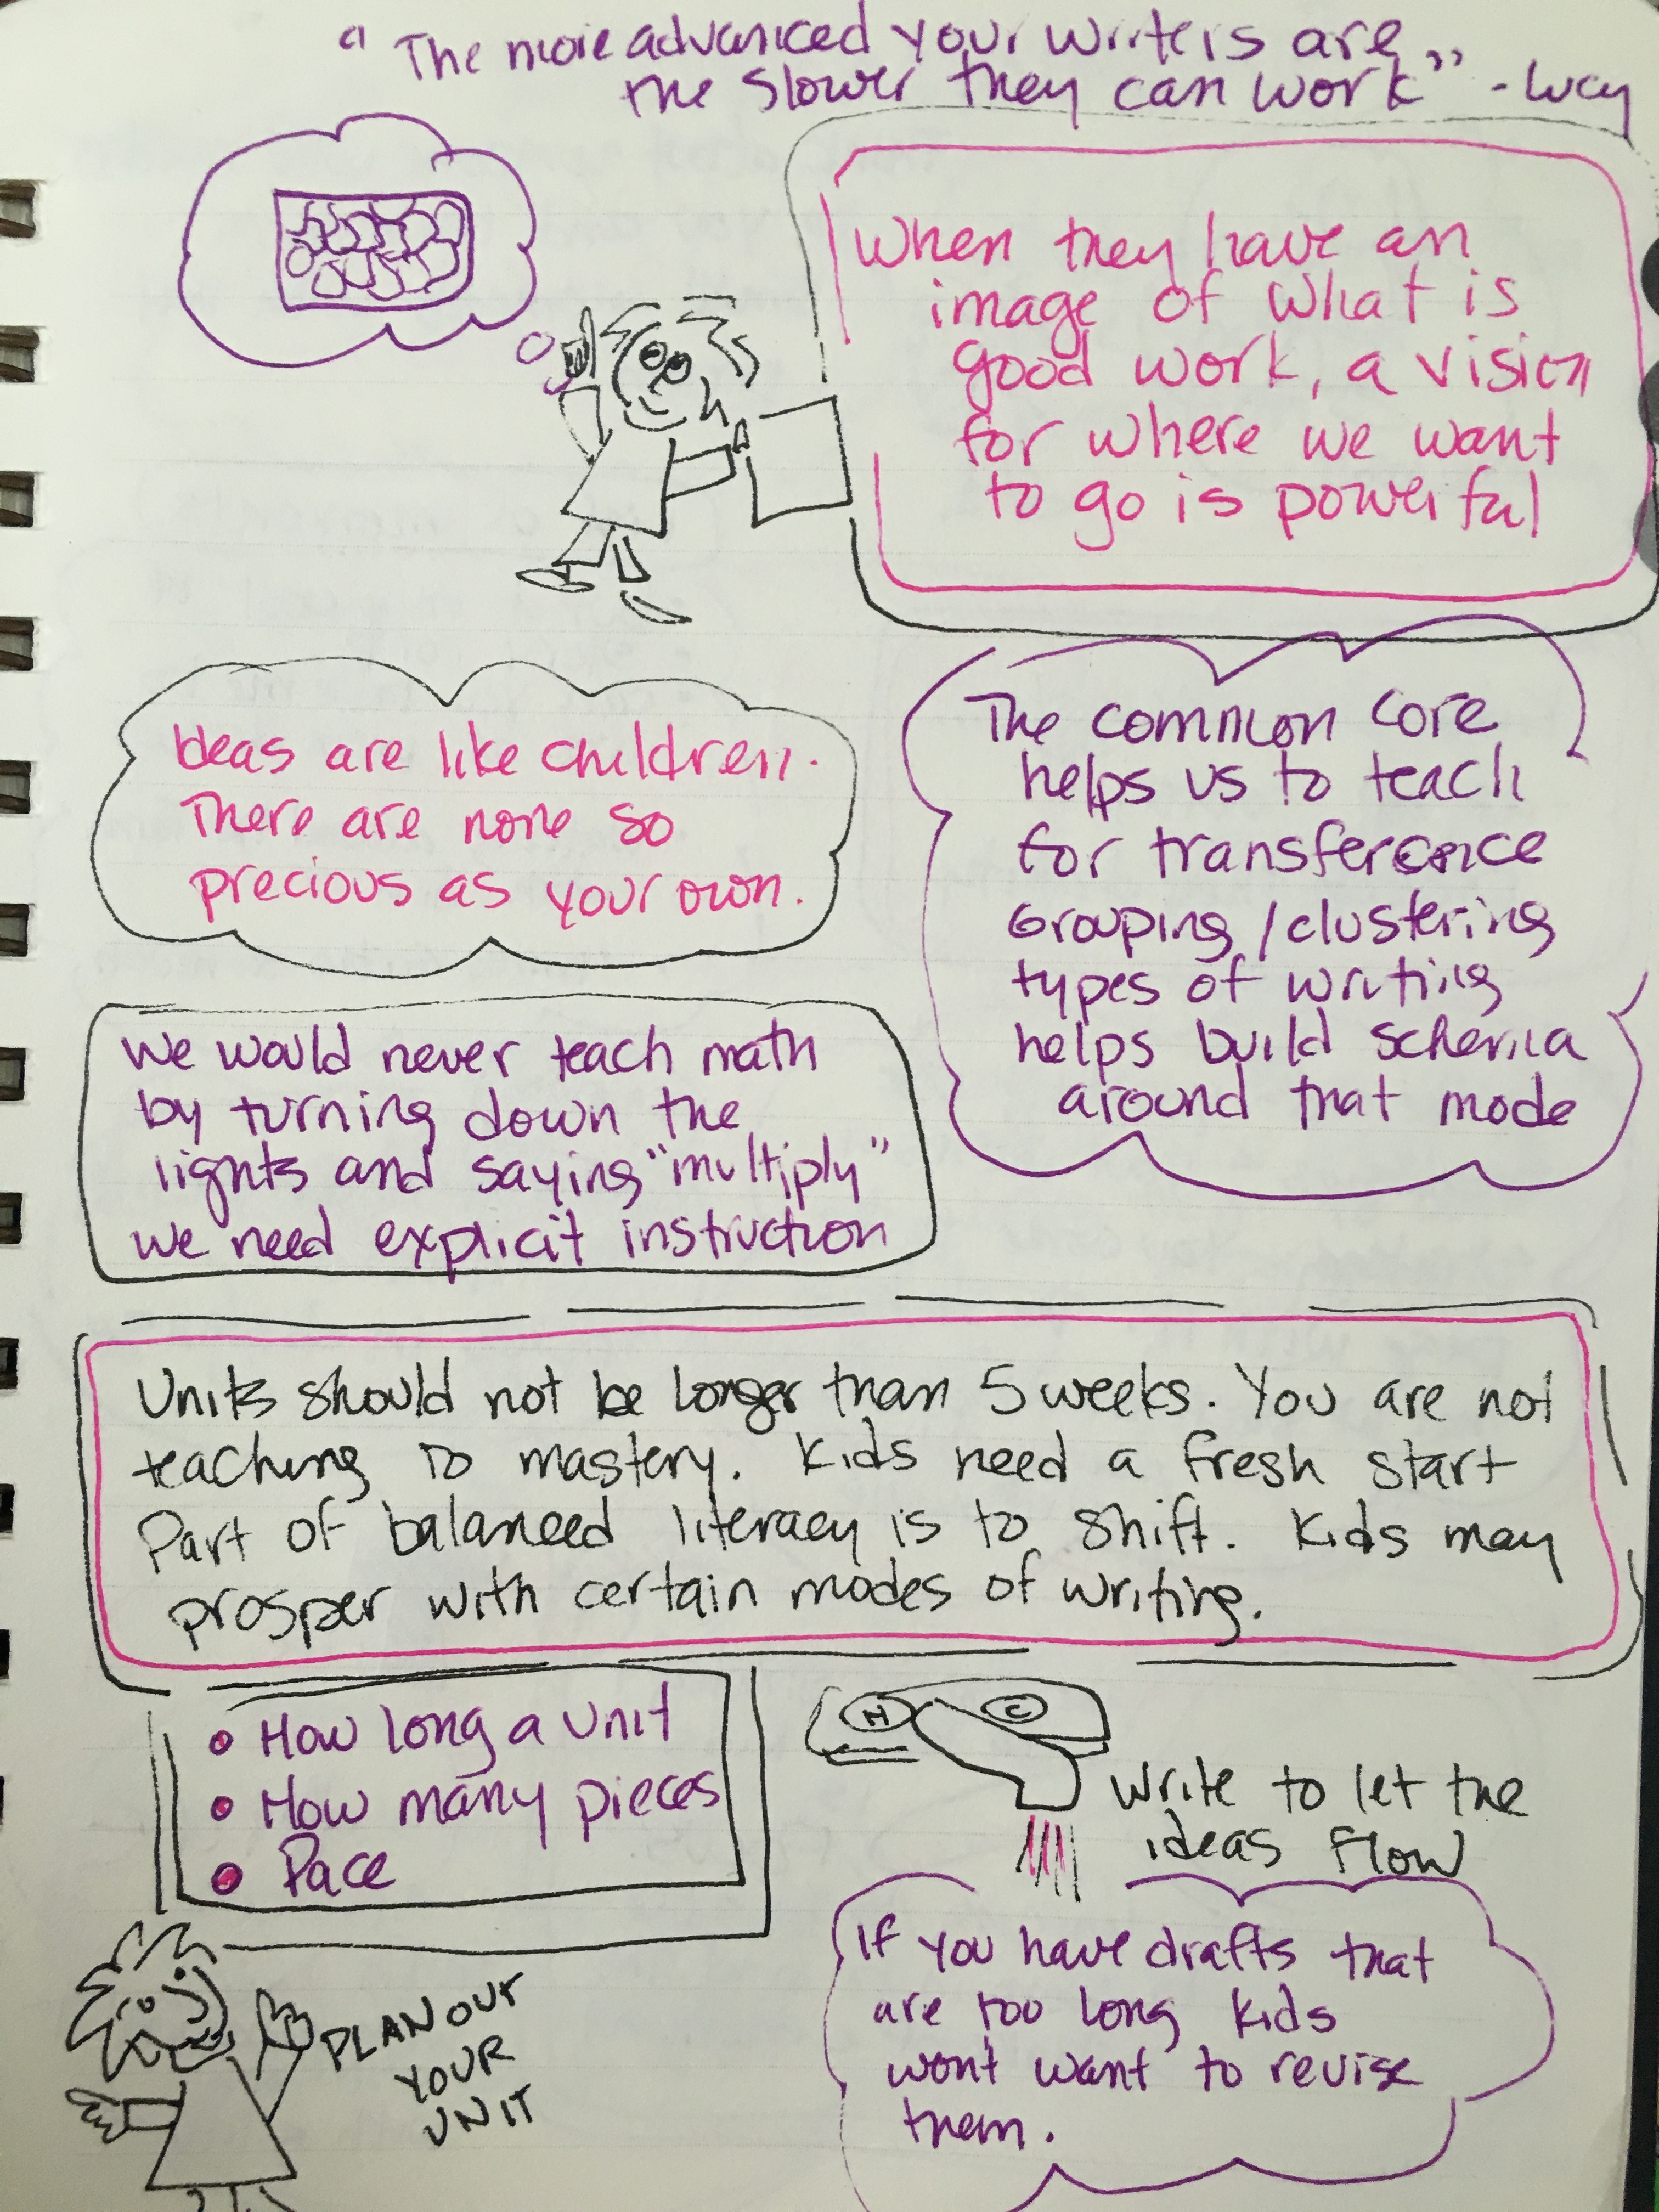 "The more advanced your writers are
the slower they can work" - Lucy
When they have an
image of what is
good work, a vision
for where we want
to go is powerful
Ideas are like children.
There are none so
precious as your own.
The common core
helps us to teach
for transference
Grouping/clustering
types of writing
helps build schema
around that mode
We would never teach math
by turning down the
lights and saying "multiply"
we need explicit instruction
Units should not be longer than 5 weeks. You are not
teaching to mastery. Kids need a fresh start
Part of balanced literacy is to shift. Kids may
prosper with certain modes of writing.
• How long a unit
• How many pieces
• Pace
PLAN OUT
YOUR
UNIT
H C
Write to let the
ideas flow
If you have drafts that
are too long kids
wont want to revise
them.